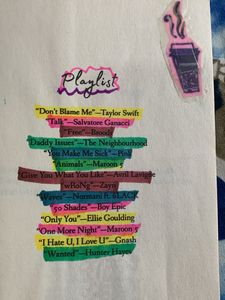 Playlist
"Don't Blame Me"—Taylor Swift
"Talk"—Salvatore Ganacci
"Free"—Broods
"Daddy Issues"—The Neighbourhood
"You Make Me Sick"—Pink
"Animals"—Maroon 5
"Give You What You Like"—Avril Lavigne
"wRoNg"—Zayn
"Waves"—Normani ft. 6LACK
"50 Shades"—Boy Epic
"Only You"—Ellie Goulding
"One More Night"—Maroon 5
"I Hate U, I Love U"—Gnash
"Wanted"—Hunter Hayes